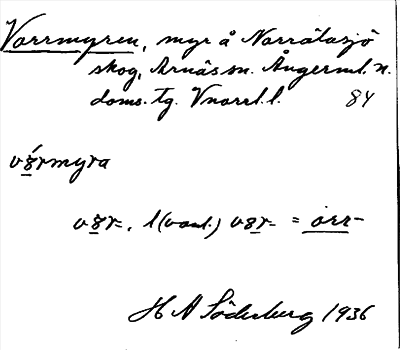 Vorrmyren, myr å Norrätasjö
skog, Arnäs sn. Ångerml. n.
doms. tg. Vnorrl. l. 84
vórmyra
vȯr-, l (vanl.) vȯr- = orr-
H A Söderberg 1936